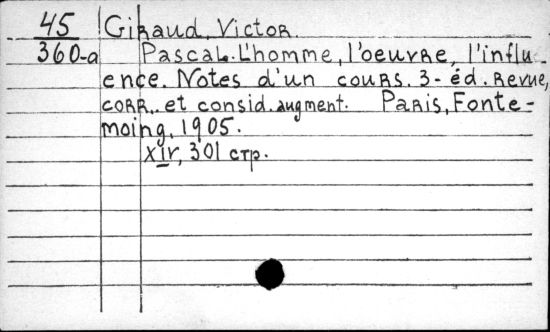 45 Giraud, Victor.
360-a Pascal. L'homme, l'oeuvre, l'influ-
ence. Notes d'un cours. 3-éd. Revue,
corr. et consid. augment. Paris, Fonte-
moing, 1905.
XIV, 301 стр.